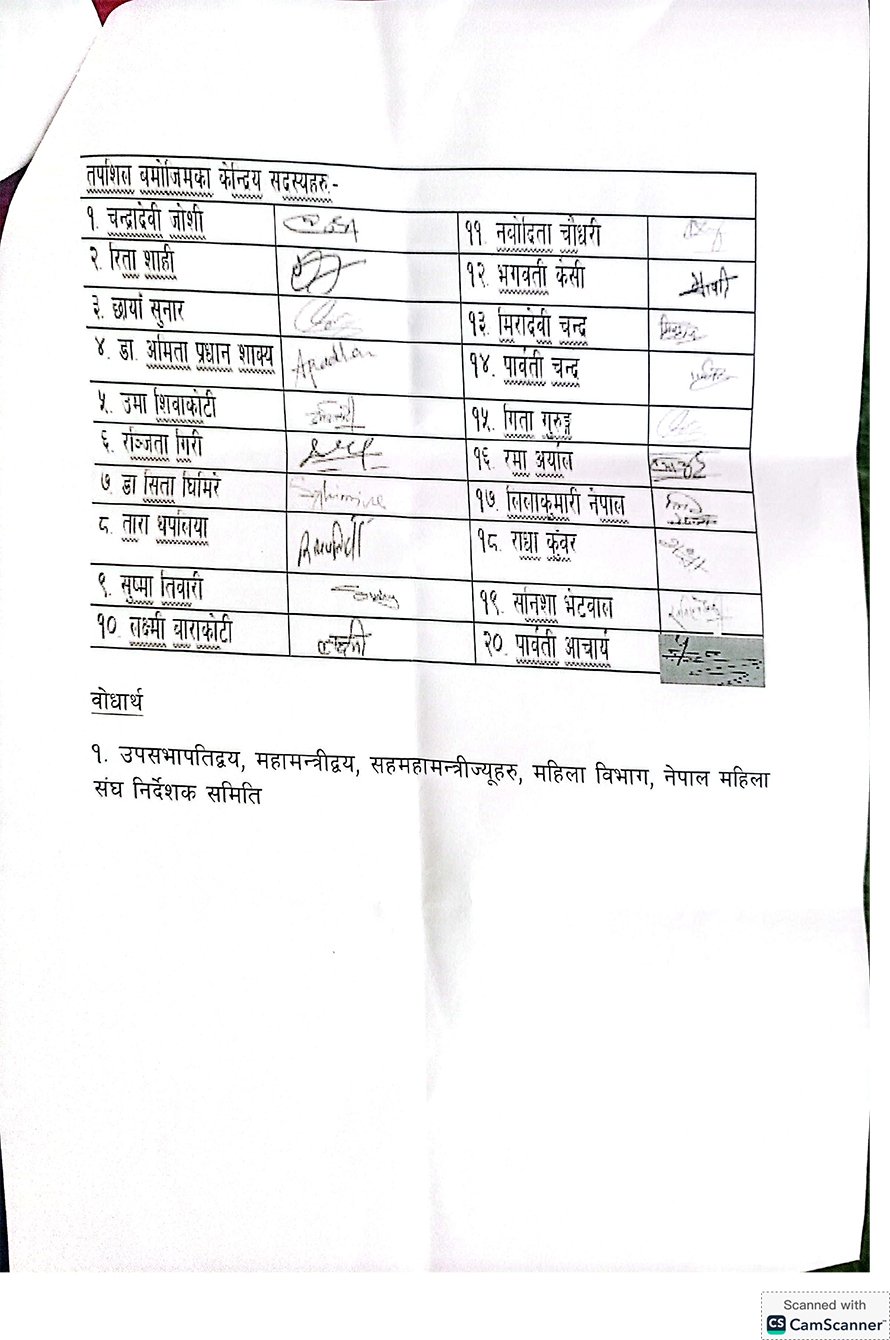 तपशिल बमोजिमका केन्द्रिय सदस्यहरु:-
१. चन्द्रादेवी जोशी
११. नवोदिता चौधरी
२. रिता शाही
१२. भगवती केसी
३. छायां सुनार
१३. मिरादेवी चन्द
४. डा. अमिता प्रधान शाक्य
Apradhan
१४. पार्वती चन्द
५. उमा शिवाकोटी
१५. गिता गुरुङ्ग
६. रञ्जिता गिरी
१६. रमा अर्याल
७. डा सिता घिमिरे
१७. लिलाकुमारी नेपाल
८. तारा थपलिया
१८. राधा कुंवर
९. सुष्मा तिवारी
१९. सनिशा भेटवाल
१०. लक्ष्मी बाराकोटी
लक्ष्मी
२०. पार्वती आचार्य
वोधार्थ
१. उपसभापतिद्वय, महामन्त्रीद्वय, सहमहामन्त्रीज्यूहरु, महिला विभाग, नेपाल महिला
संघ निर्देशक समिति
Scanned with
CS CamScanner